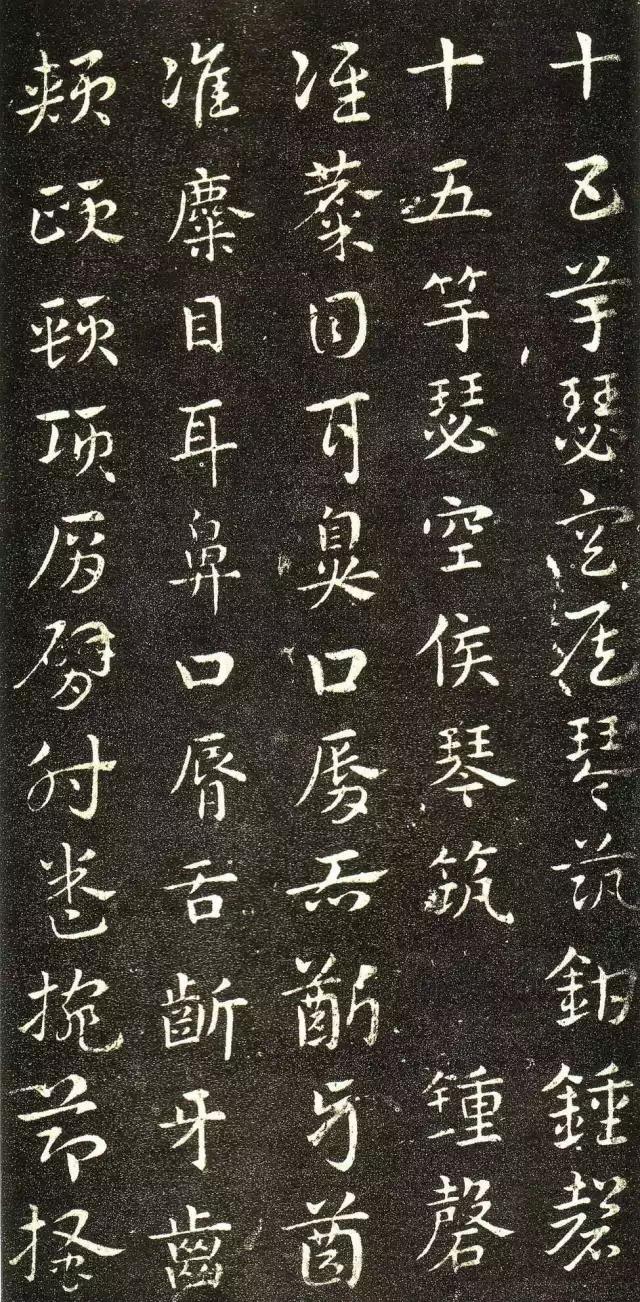 十五竽瑟空侯琴筑鍾磬
十五竽瑟空侯琴筑 鍾磬
准麋目耳鼻口脣舌齗牙齒
准麋目耳鼻口脣舌齗牙齒
頰頤頸項肩臂肘卷捥節搔